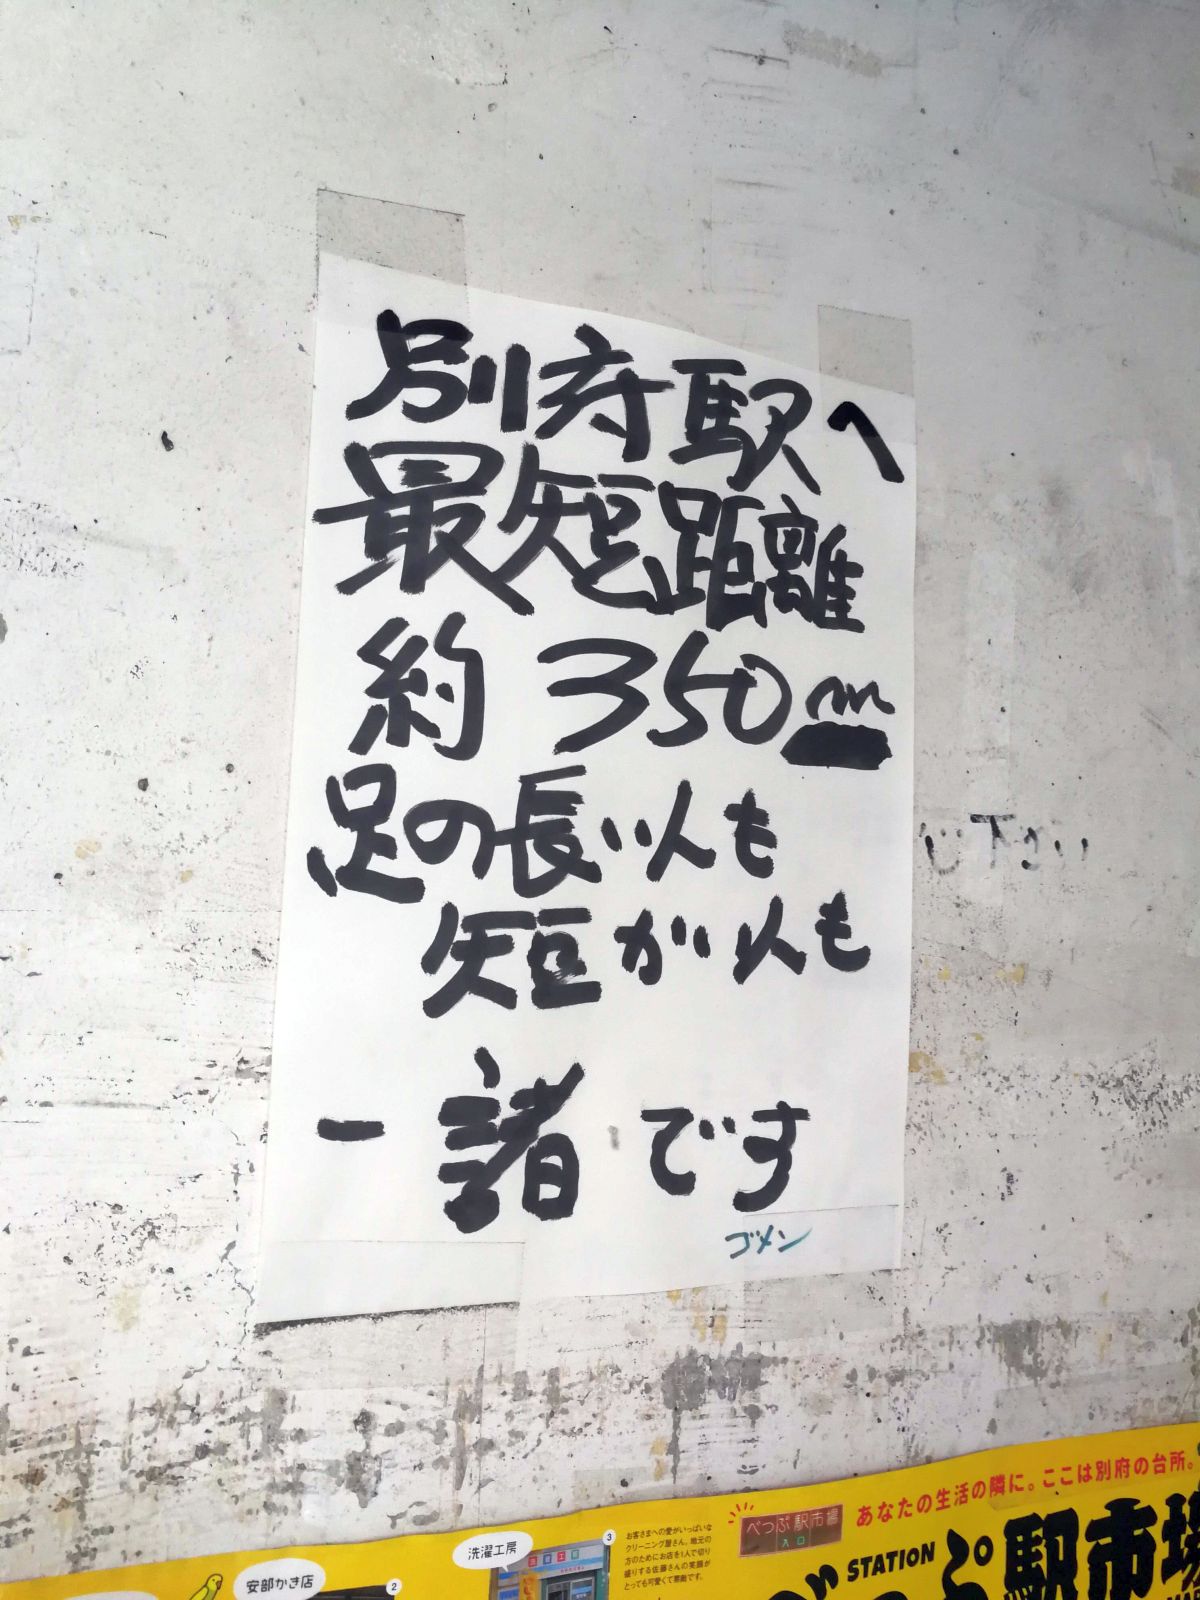 別府駅へ
最短距離
約 350m
足の長い人も
短かい人も
一諸です
ゴメン
あなたの生活の隣に。ここは別府の台所。
べっぷ駅市場
入口
STATION
べっぷ駅市場
洗濯工房
3
お客さまへの愛がいっぱいな
クリーニング屋さん。地元の
方のためにお店を1人で切り
盛りする佐藤さんの笑顔が
とっても可愛くて素敵です。
安部かき店
2